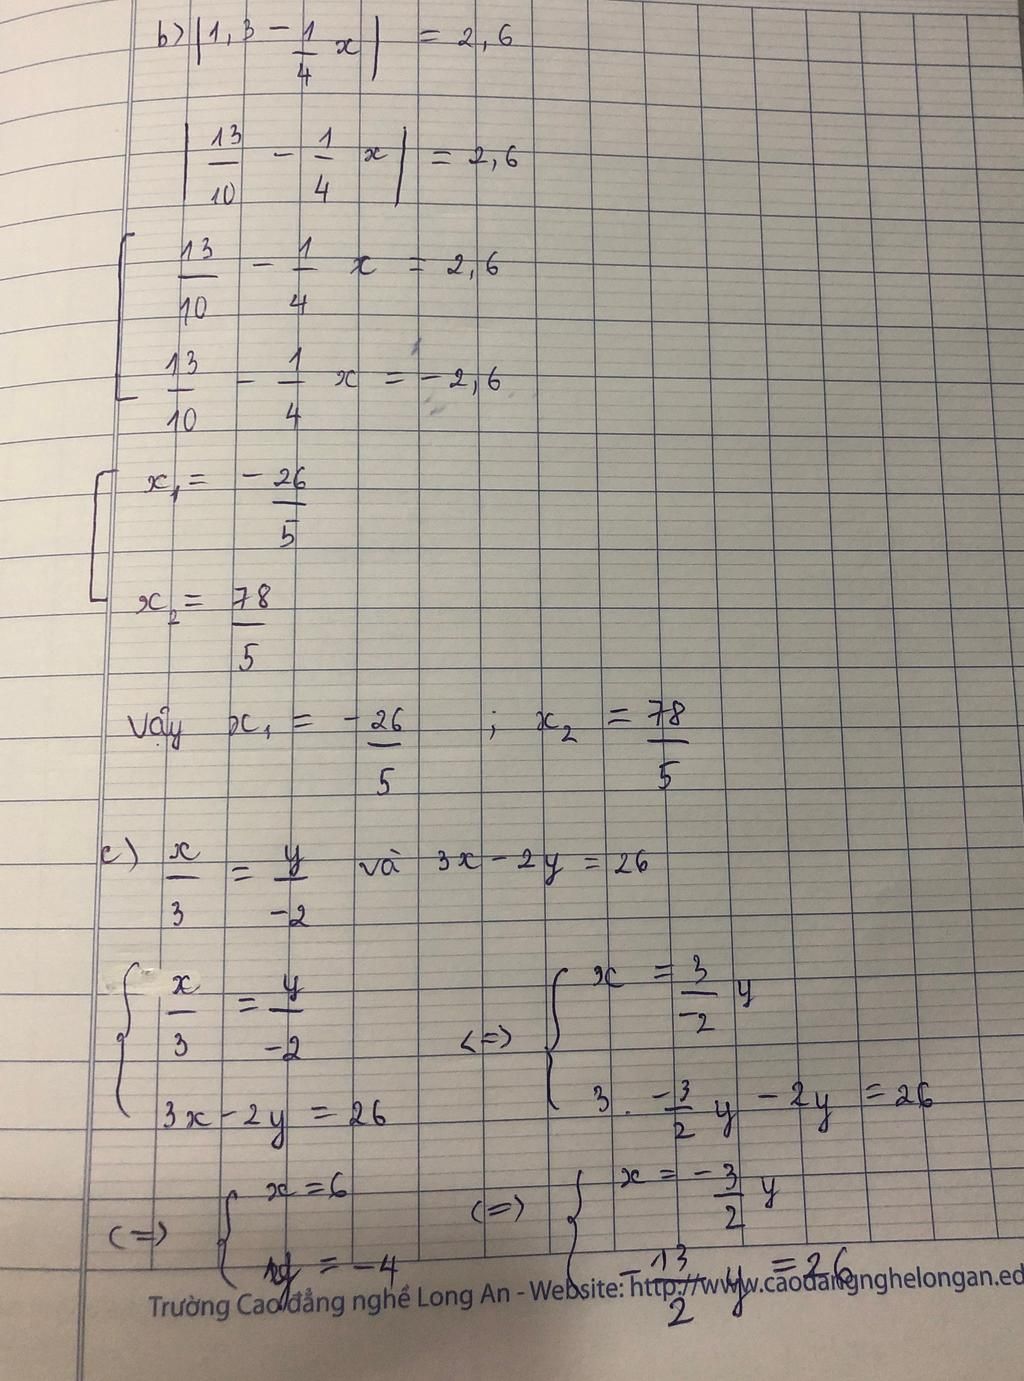 b) |1,3 - 1/4 x| = 2,6
|13/10 - 1/4 x| = 2,6
[ 13/10 - 1/4 x = 2,6
13/10 - 1/4 x = -2,6
[ x₁ = -26/5
x₂ = 78/5
Vậy x₁ = -26/5 ; x₂ = 78/5
c) x/3 = y/-2 và 3x - 2y = 26
{ x/3 = y/-2
3x - 2y = 26
<=> { x = 3/-2 y
3 . -3/2 y - 2y = 26
<=> { x = -3/2 y
-13/2 y = 26
<=> { x = 6
y = -4
Trường Cao đẳng nghề Long An - Website: http://www.caodangnghelongan.ed